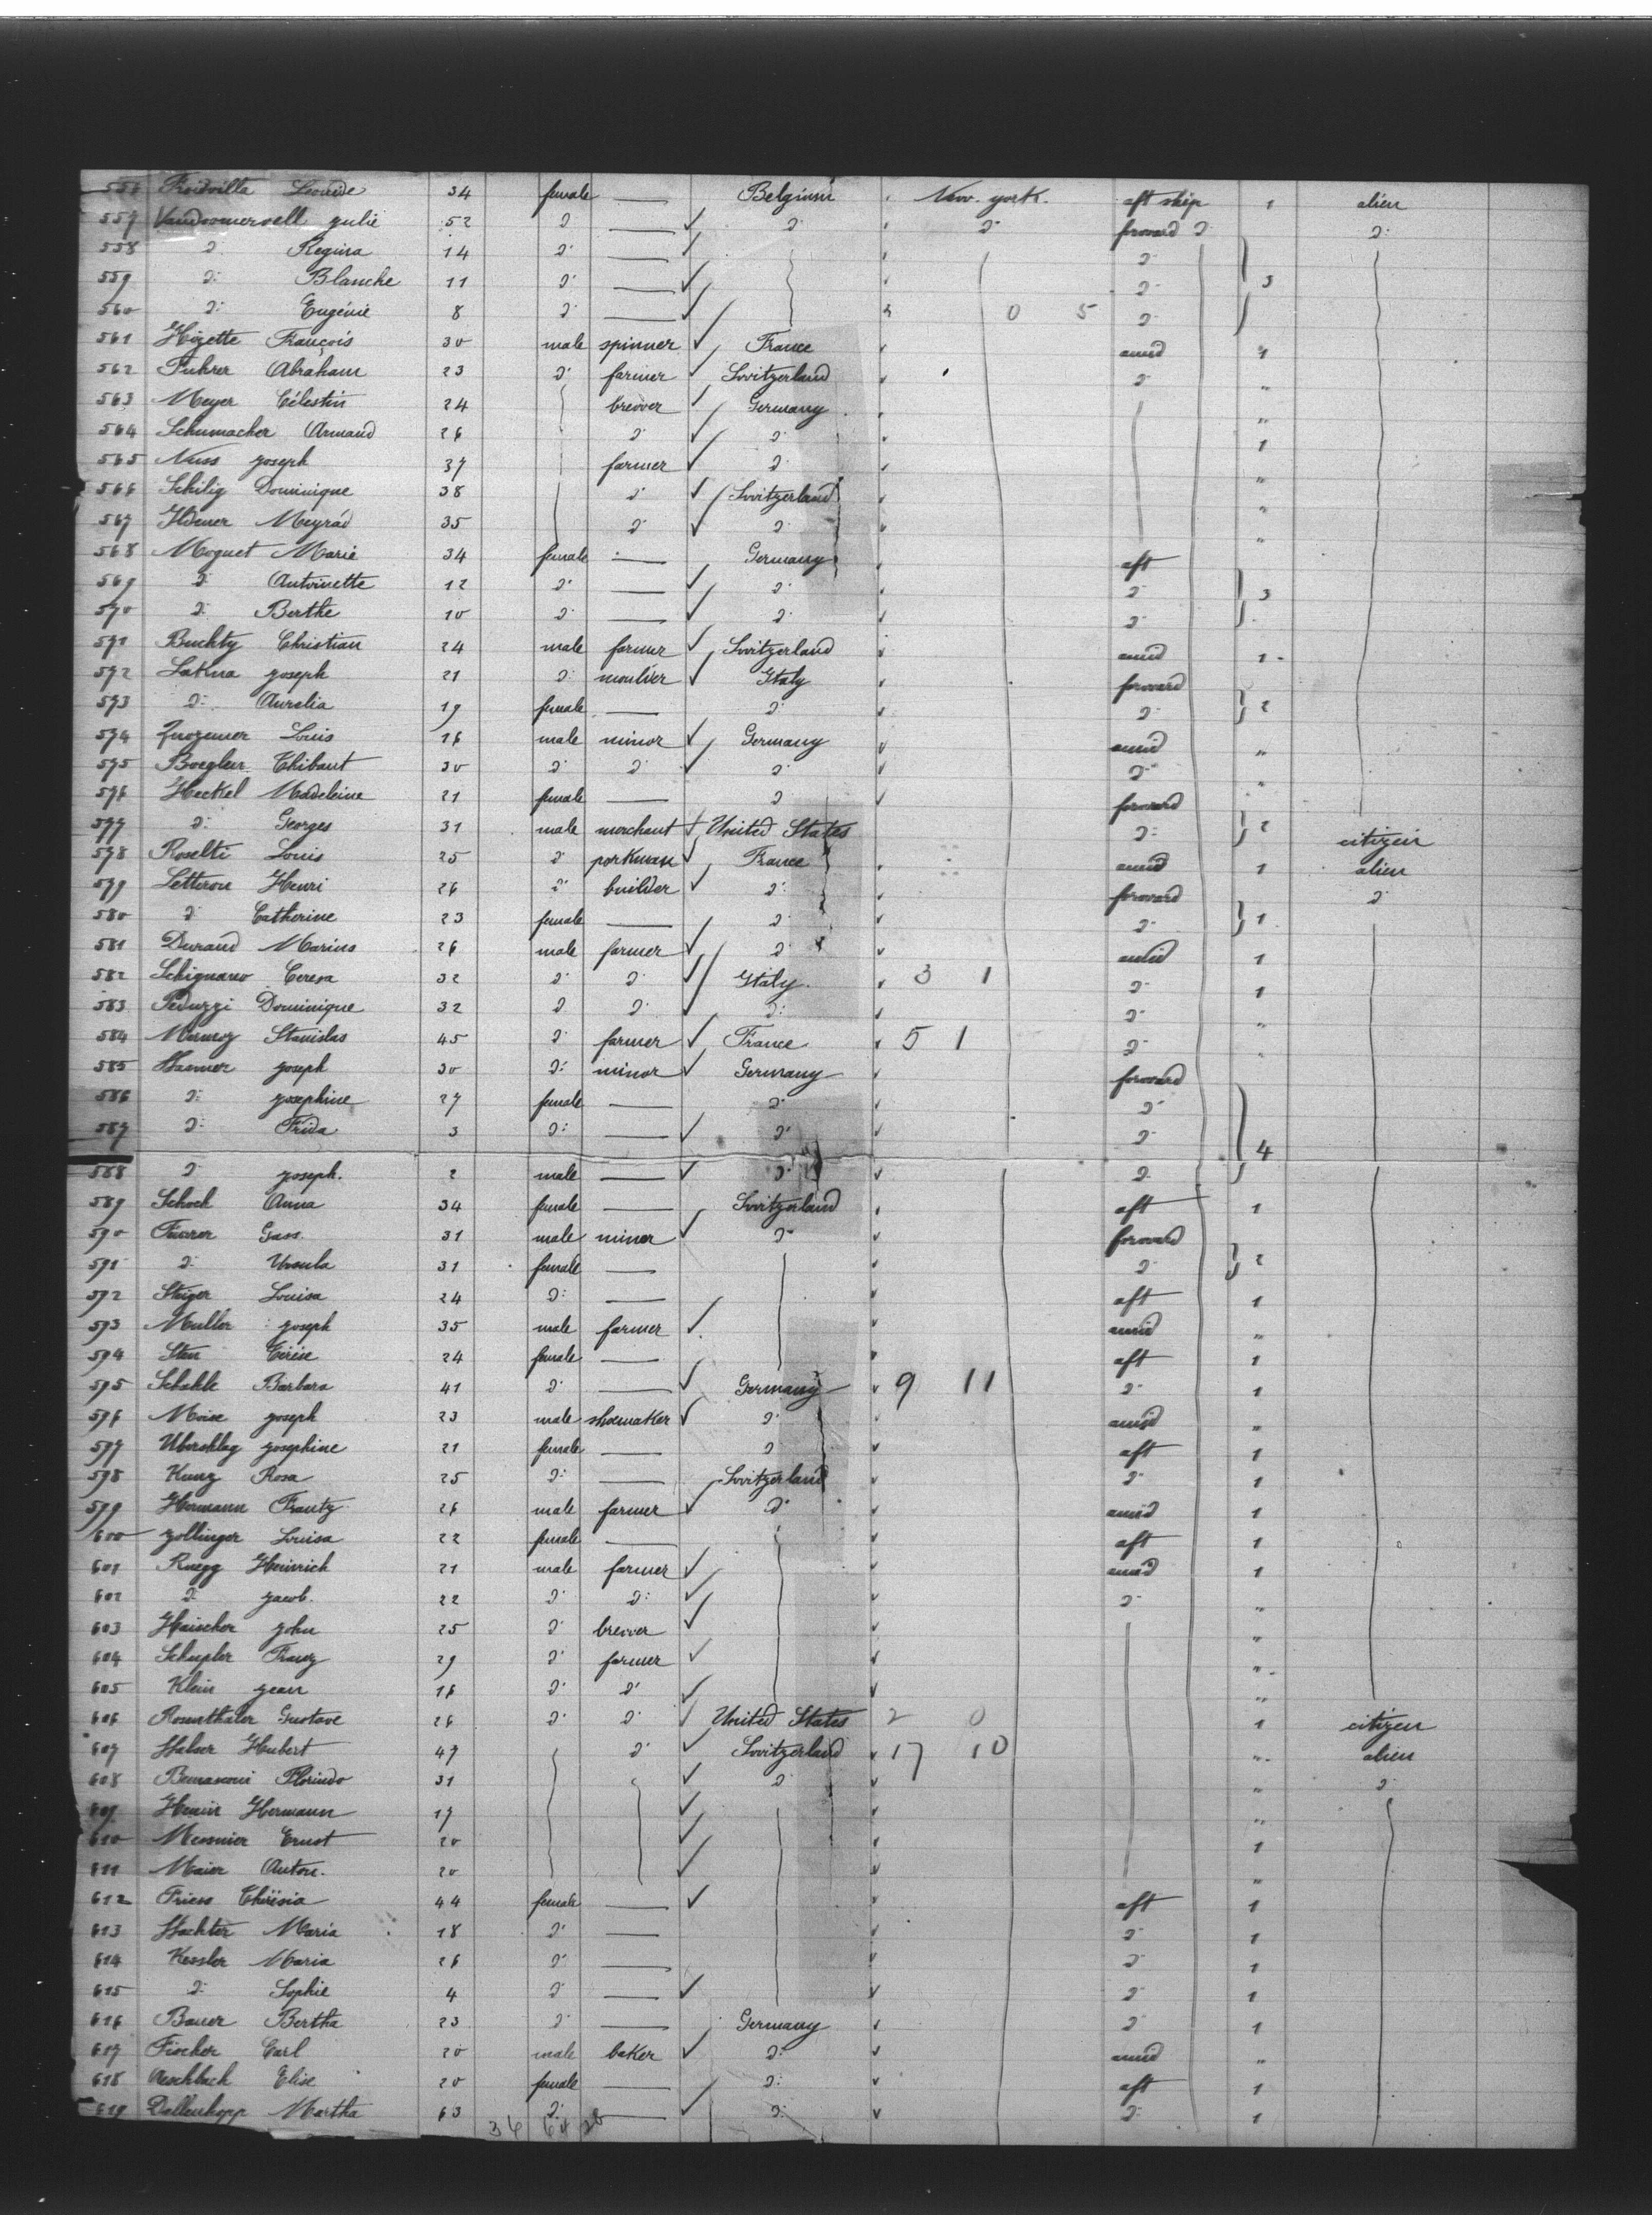 556 Froidvilla Leonide 34 female — Belgium New-york. aft ship 1 alien
557 Vandoomervell julie 52 d — d d forward d d:
558 d Regina 14 d —  d
559 d: Blanche 11 d — d 3
560 d: Eugénie 8 d — 0 5 d
561 Hizette François 30 male spinner France amid 1
562 Fuhrer Abraham 23 d farmer Switzerland d "
563 Meyer Célestin 24 brewer Germany "
564 Schumacher Armand 26 d d 1
565 Nuss joseph 37 farmer d "
566 Schilig Dominique 38 d Switzerland "
567 Meyrad 35 d d "
568 Moguet Marie 34 female — Germany aft
569 d Antoinette 12 d — d d 3
570 d: Berthe 10 d — d d
571 Buchty Christian 24 male farmer Switzerland amid 1
572 Lakna joseph 21 d moulder Italy forward
573 d: Aurelia 19 female — d d 2
574 Louis 16 male minor Germany amid "
575 Boegleur Thibaut 30 d d d d "
576 Heckel Madeleine 21 female — d forward
577 d: Georges 31 male merchant United States d: 2 citizen
578 Roselti Louis 25 d porkman France amid 1 alien
579 Letteron Henri 26 d builder d: forward d
580 d Catherine 23 female — d d 1
581 Durand Marius 26 male farmer d amid 1
582 Schignareo Ceresa 32 d d Italy. 3 1 d 1
583 Peduzzi Dominique 32 d d d: d "
584 Stanislas 45 d farmer France 5 1 d "
585 Haamer joseph 30 d: minor Germany forward
586 d: josephine 27 female — d d
587 d: Frida 3 d: — d d 4
588 d joseph. 2 male — d d
589 Schoch Anna 34 female — Switzerland aft 1
590 Furrer Gass. 31 male miner d forward
591 d: Ursula 31 female — d 2
592 Steiger Louisa 24 d: — aft 1
593 Muller joseph 35 male farmer amid "
594 24 female — aft 1
595 Schahle Barbara 41 d — Germany 9 11 d 1
596 Moise joseph 23 male shoemaker d amid "
597 Uberschlag josephine 21 female — d aft 1
598 Kunz Rosa 25 d: — Switzerland d 1
599 Hermann Frantz 26 male farmer d amid 1
600 Zollinger Louisa 22 female — aft 1
601 Ruegg Heinrich 21 male farmer amid 1
602 d: jacob. 22 d d: d "
603 Haischer john 25 d brewer "
604 Schupler Franz 29 d farmer "
605 Klein jean 16 d d "
606 Rosenthaler Gustave 26 d d United States 2 0 1 citizen
607 Halser Hubert 47 d Switzerland 17 10 " alien
608 Bernasconi Florindo 31 d " d
609 Henin Hermann 17 "
610 Mesmier Ernst 20 1
611 Maier Anton. 20 "
612 Friess Thérèsia 44 female — aft 1
613 Hachter Maria 18 d — d 1
614 Kessler Maria 26 d — d 1
615 d: Sophie 4 d — d 1
616 Bauer Bertha 23 d — Germany d 1
617 Fischer Carl 20 male baker d: amid "
618 Aeschbach Elise 20 female — d: aft 1
619 Dallenkopp Martha 63 d: — d: d: 1